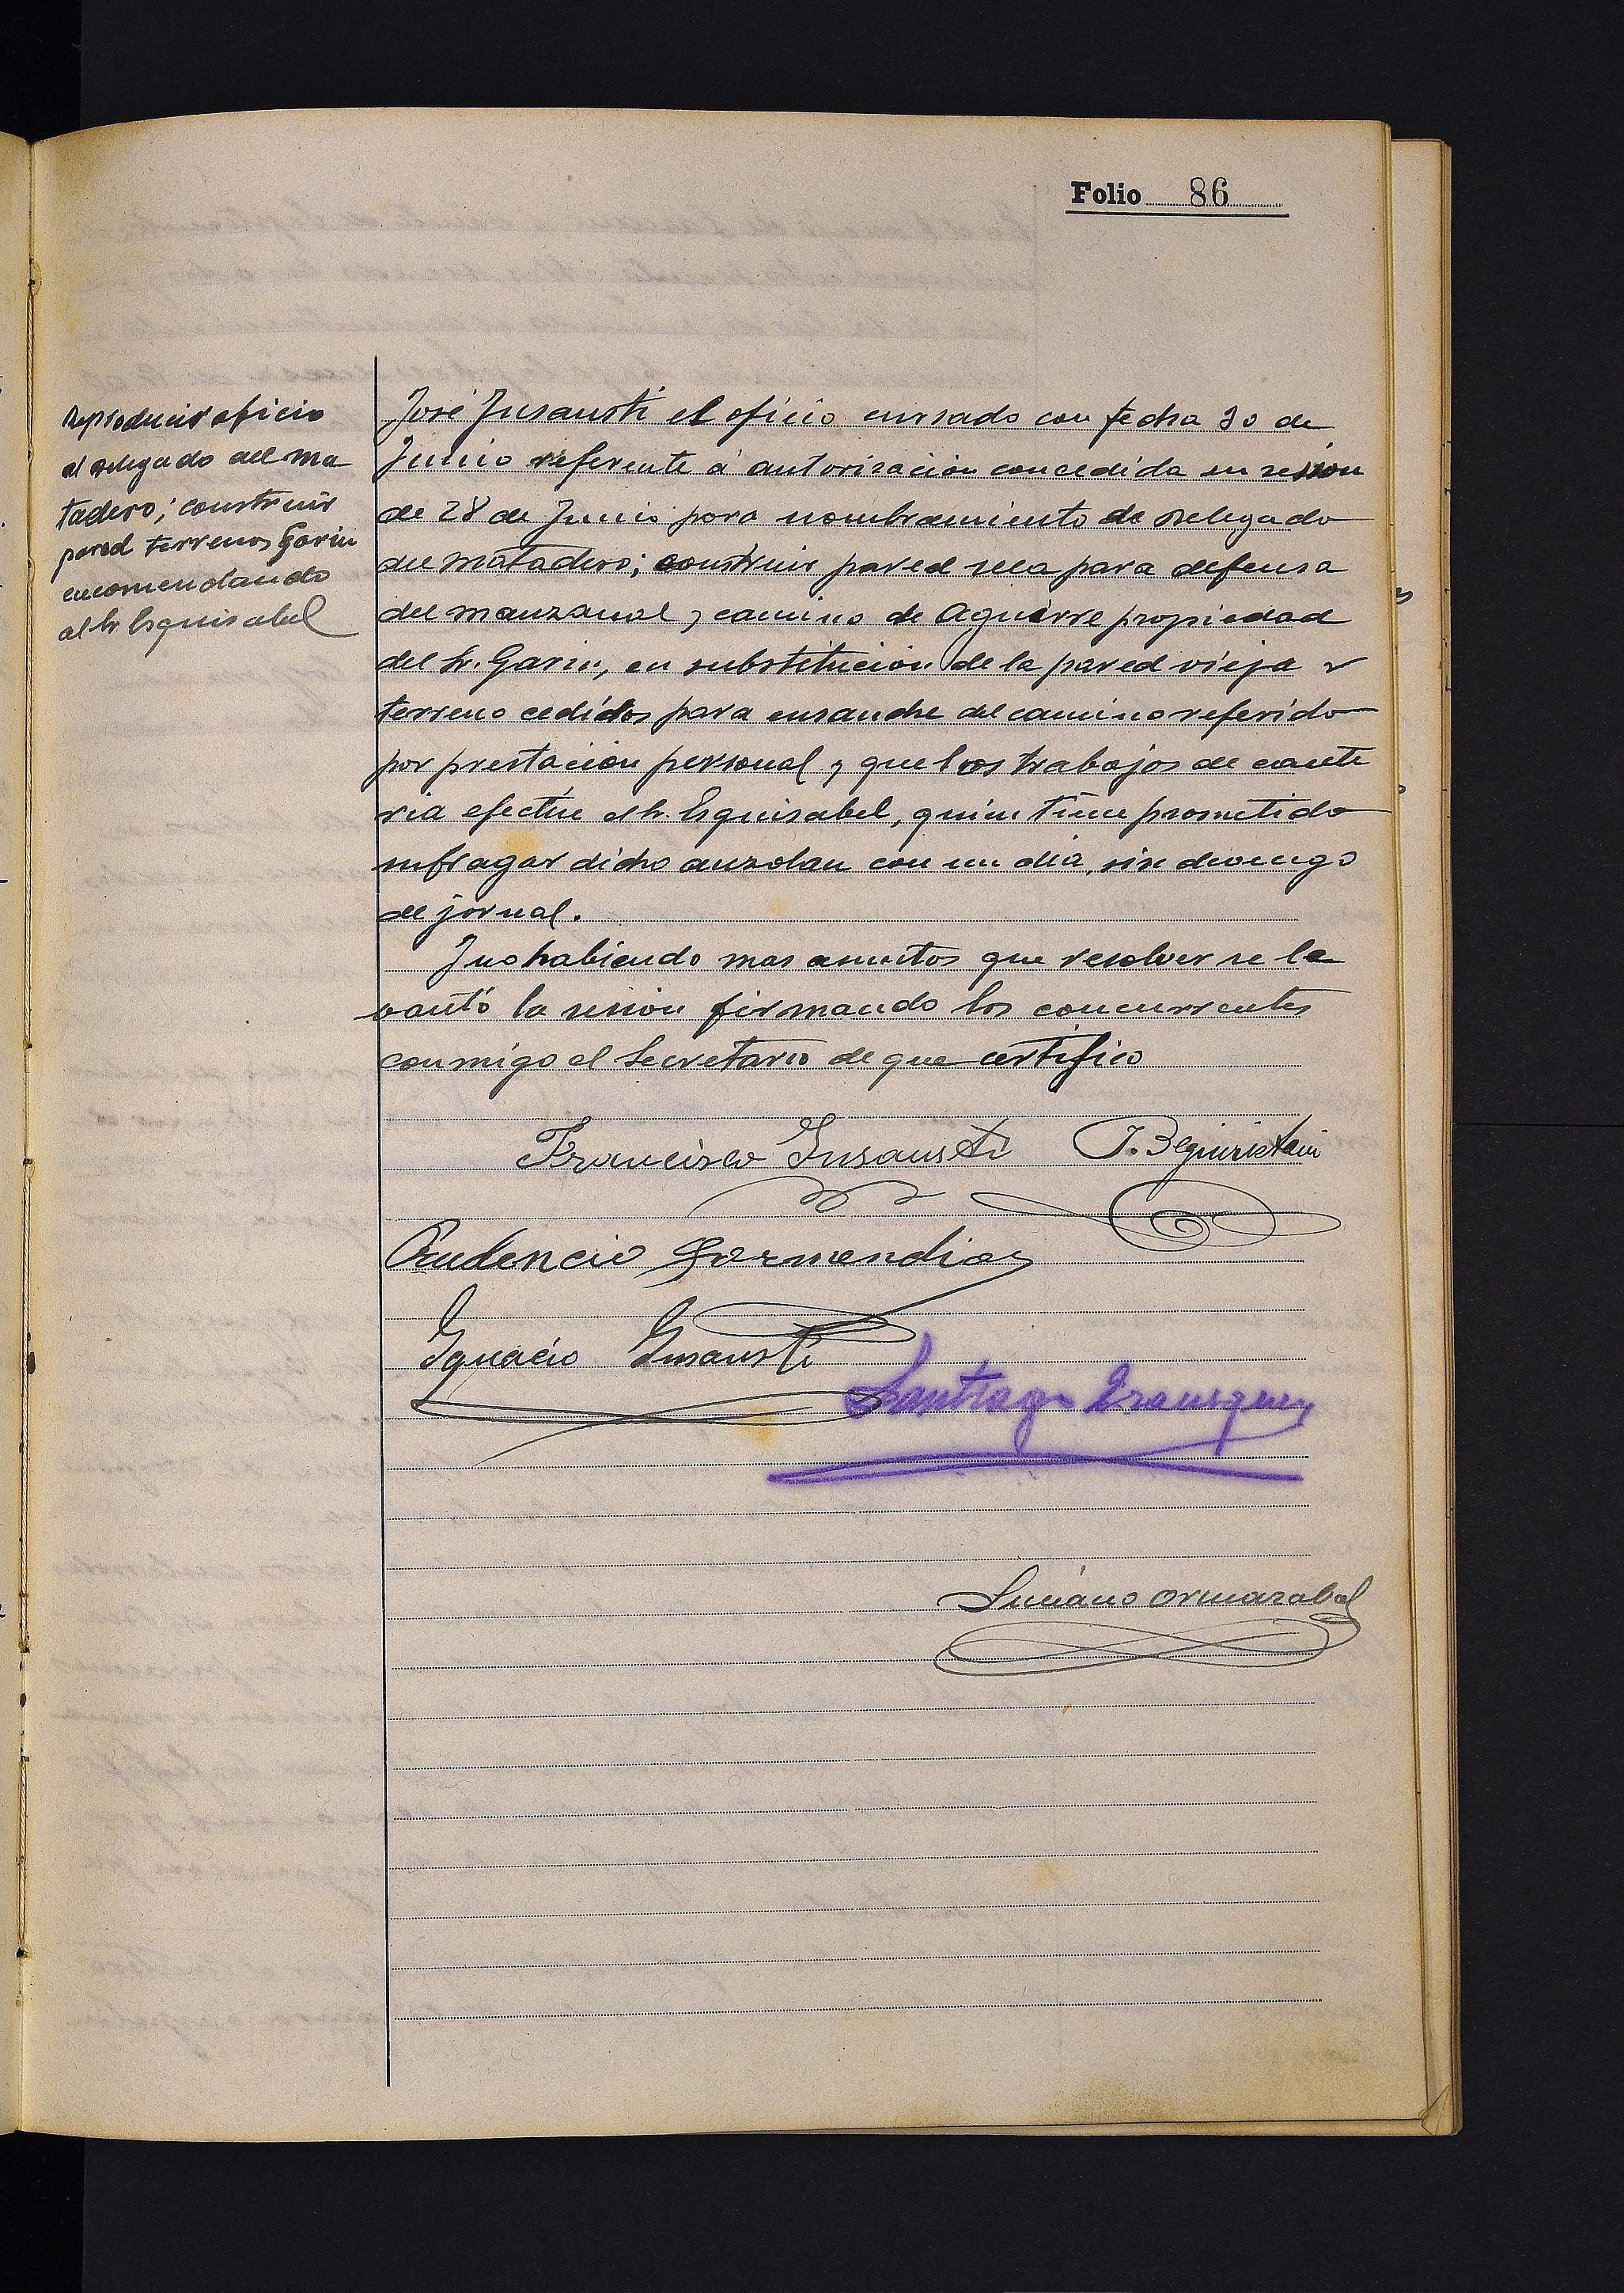 Folio 86
Reproducir oficio
al Delegado del ma
tadero; construir
pared terrenos Garin
encomendando
al Sr Esquisabel
José Insausti el oficio cursado con fecha 30 de
Junio referente á autorisacion concedida en sesion
de 28 de Junio para nombramiento de Delegado
del Matadero; construir pared seca para defensa
del manzanal y camino de Aguirre propiedad
del Sr. Garin, en substitucion de la pared vieja y
terreno cedidos para ensanche del camino referido
por prestacion personal y que los trabajos de cante
ria efectúe el Sr. Esquisabel, quien tiene prometido
sufragar dicho auzolan con un dia, sin devengo
de jornal.
Y no habiendo mas asuntos que resolver se le
vantó la sesion firmando los concurrentes
conmigo el Secretario de que certifico
Francisco Insausti J. Beguiristain
Prudencio Garmendia
Ignacio Insausti
Santiago
Luciano Ormazabal